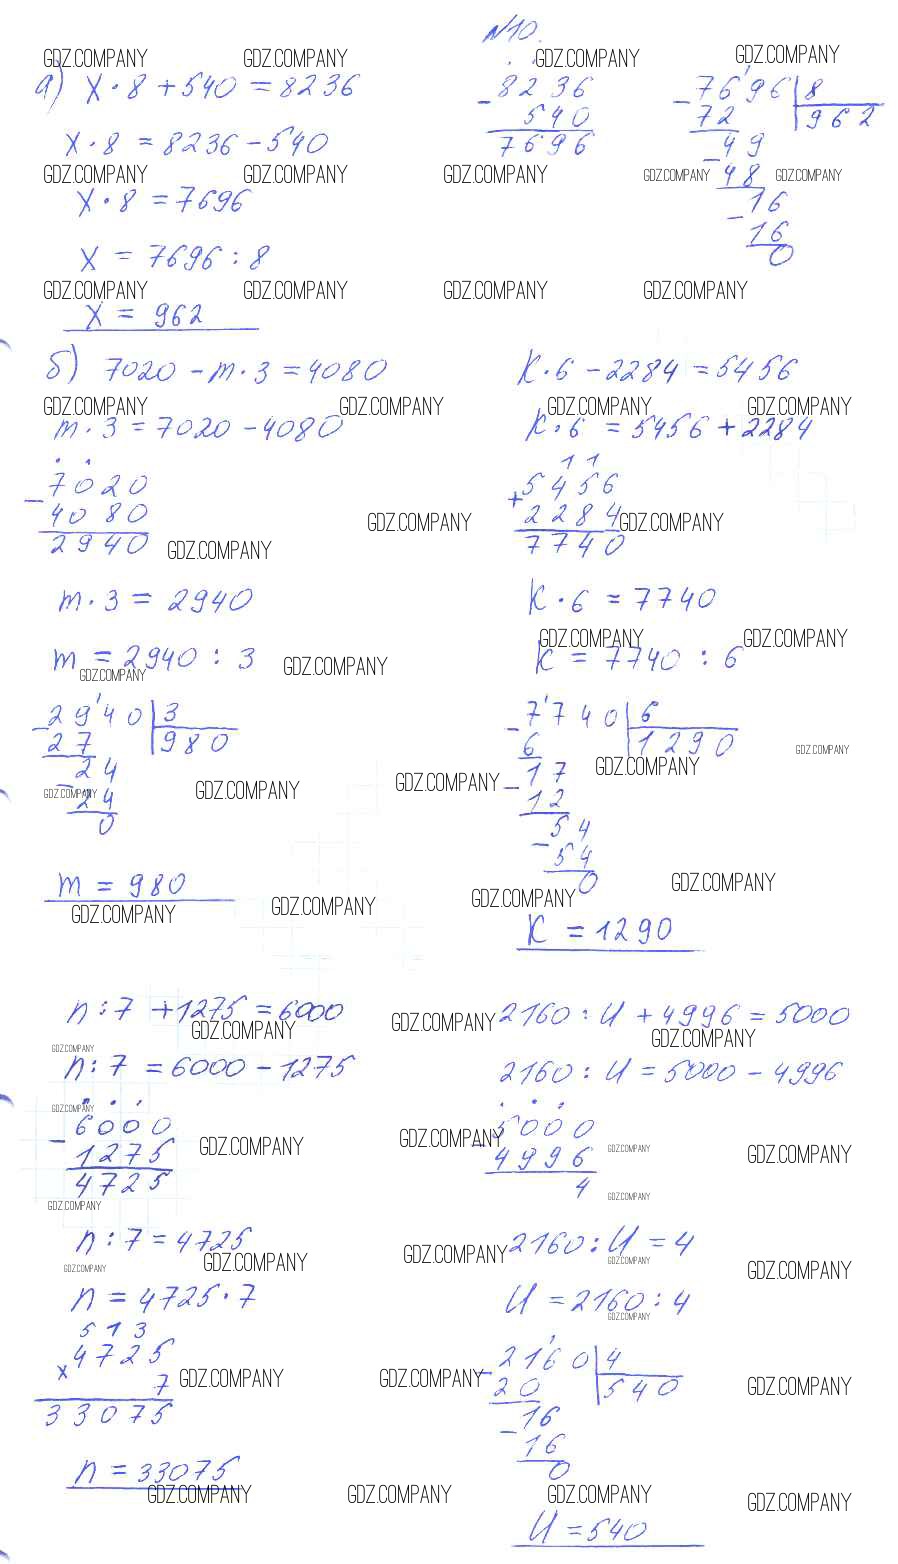 №10.
а) x · 8 + 540 = 8236
x · 8 = 8236 - 540
x · 8 = 7696
x = 7696 : 8
x = 962
- 8236
540
7696
- 7696 | 8
72 | 962
- 49
48
- 16
16
0
б) 7020 - m · 3 = 4080
m · 3 = 7020 - 4080
- 7020
4080
2940
m · 3 = 2940
m = 2940 : 3
- 2940 | 3
27 | 980
- 24
24
0
m = 980
k · 6 - 2284 = 5456
k · 6 = 5456 + 2284
1 1
+ 5456
2284
7740
k · 6 = 7740
k = 7740 : 6
- 7740 | 6
6 | 1290
- 17
12
- 54
54
0
k = 1290
n : 7 + 1275 = 6000
n : 7 = 6000 - 1275
- 6000
1275
4725
n : 7 = 4725
n = 4725 · 7
5 1 3
x 4725
7
33075
n = 33075
2160 : u + 4996 = 5000
2160 : u = 5000 - 4996
- 5000
4996
4
2160 : u = 4
u = 2160 : 4
- 2160 | 4
20 | 540
- 16
16
0
u = 540
GDZ.COMPANY